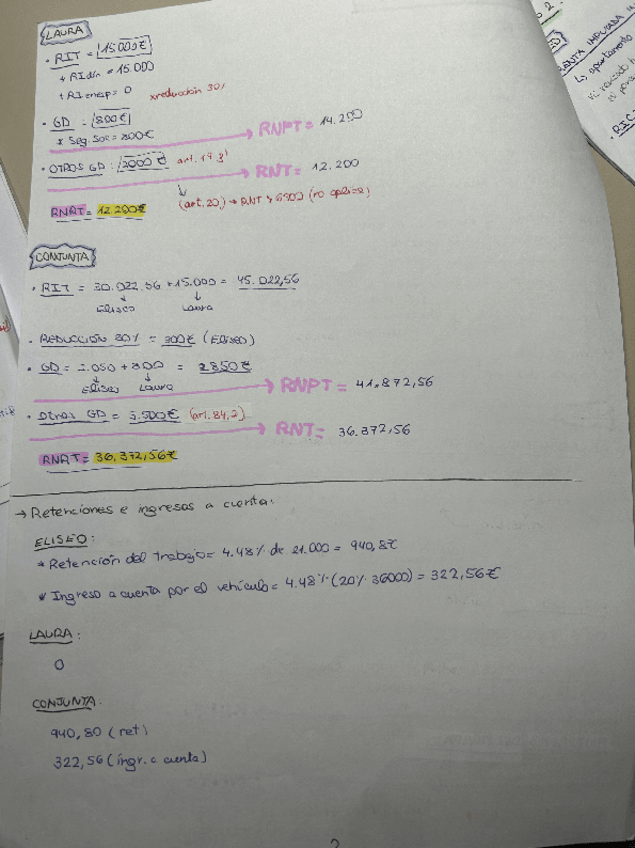 LAURA
· RIT = 15.000€
* RI din = 15.000
* RI enesp = 0 x reducción 30%
· GD = 800€
* Seg. Soc = 800€
RNPT = 14.200
· OTROS GD = 2000€ art. 19.2
RNT = 12.200
(art. 20) → RNT > 6500 (no aplica)
RNRT = 12.200€
CONJUNTA
· RIT = 30.022,56 + 15.000 = 45.022,56
Eliseo Laura
· REDUCCIÓN 30% = 300€ (Eliseo)
· GD = 2.050 + 800 = 2850€
Eliseo Laura
RNPT = 41.872,56
· Otros GD = 5.500€ (art. 84,2)
RNT = 36.372,56
RNRT = 36.372,56€
→ Retenciones e ingresos a cuenta:
ELISEO:
* Retención del trabajo = 4.48% de 21.000 = 940,8€
* Ingreso a cuenta por el vehículo = 4.48% (20% 36000) = 322,56€
LAURA:
0
CONJUNTA:
940,80 (ret)
322,56 (ingr. a cuenta)
2
RENTA IMPUTADA
↳ apartamento